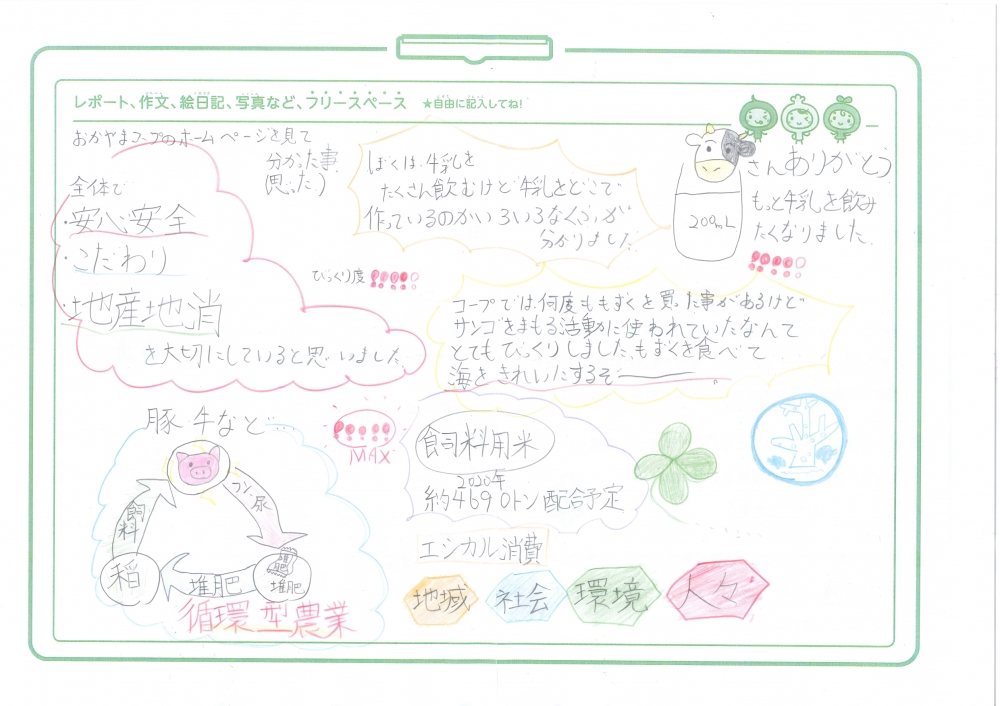 レポート、作文、絵日記、写真など、フリースペース ★自由に記入してね!
おかやまコープのホームページを見て
分かった事
(思った)
全体で
・安心安全
・こだわり
・地産地消
を大切にしていると思いました。
ぼくは、牛乳を
たくさん飲むけど牛乳をどこで
作っているのかいろいろなくふうが
分かりました。
びっくり度
200mL
さんありがとう
もっと牛乳を飲み
たくなりました。
コープでは、何度ももずくを買った事があるけど
サンゴをまもる活動に使われていたなんて
とてもびっくりしました。もずくを食べて
海をきれいにするぞー
豚 牛など…
MAX
フン、尿
堆肥
堆肥
稲
飼料
循環型農業
飼料用米
2020年
約4690トン配合予定
エシカル消費
地域 社会 環境 人々